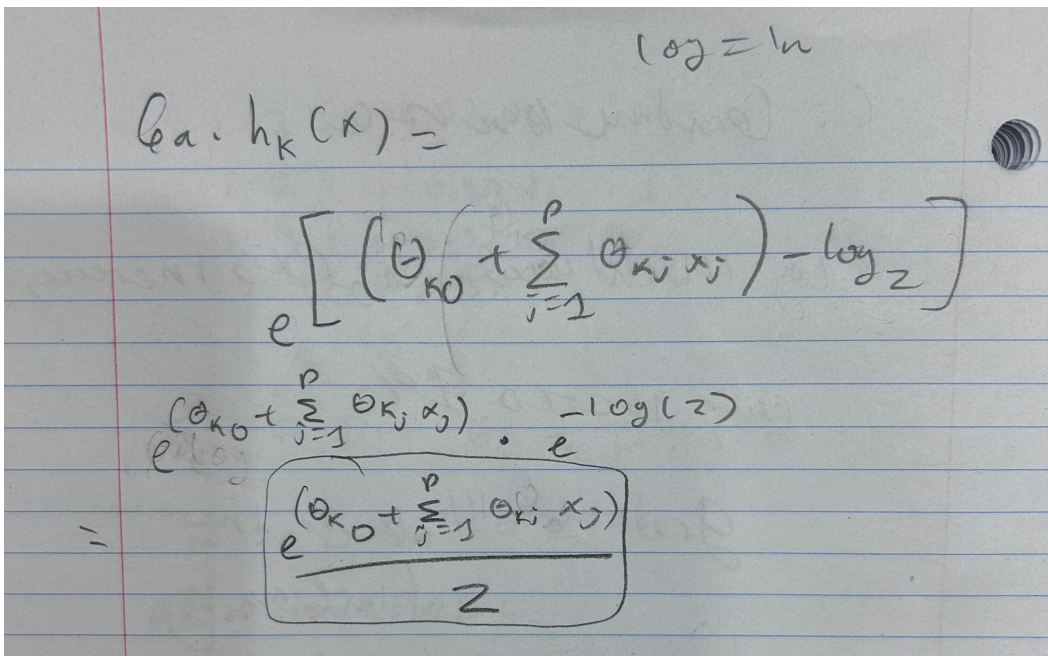 log = ln
6a. h_K(x) =
e^[(θ_K0 + Σ_{j=1}^p θ_Kj x_j) - log z]
e^(θ_K0 + Σ_{j=1}^p θ_Kj x_j) · e^-log(z)
= e^(θ_K0 + Σ_{j=1}^p θ_Kj x_j) / z